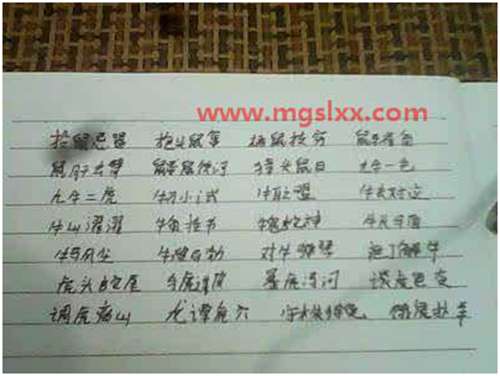 www.mgslxx.com
投鼠忌器 抱头鼠窜 梧鼠技穷 鼠牙雀角
鼠肝虫臂 獐头鼠目 九牛一毛
九牛二虎 牛刀小试 牛耳之盟 牛衣对泣
牛山濯濯 牛角挂书 牛鬼蛇神 牛头马面
牛溲马勃 对牛弹琴 庖丁解牛
虎头蛇尾 与虎谋皮 暴虎冯河 谈虎色变
调虎离山 龙潭虎穴 守株待兔